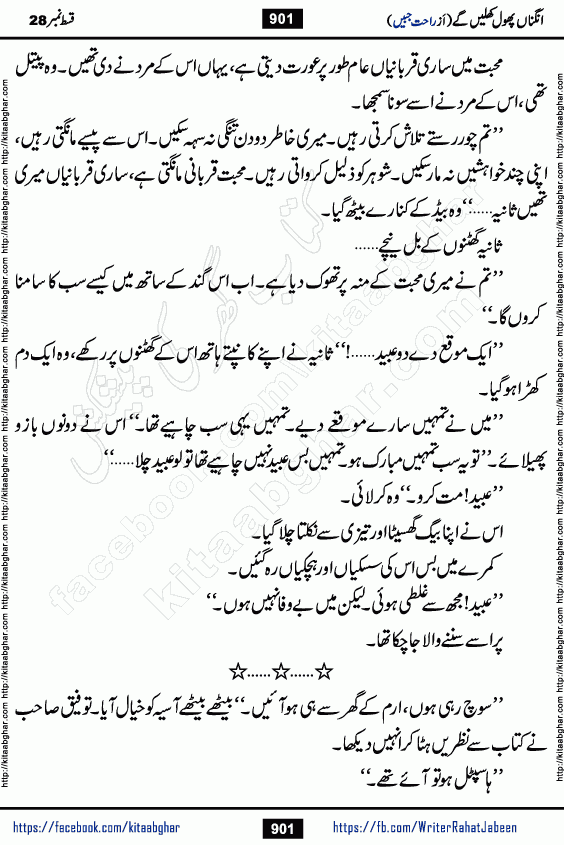 انگناں پھول کھلیں گے (از راحت جبیں)
901
قسط نمبر 28
محبت میں ساری قربانیاں عام طور پر عورت دیتی ہے، یہاں اس کے مرد نے دی تھیں۔ وہ پیتل
تھی، اس کے مرد نے اسے سونا سمجھا۔
’’تم چور رستے تلاش کرتی رہیں۔ میری خاطر دو دن تنگی نہ سہہ سکیں۔ اس سے پیسے مانگتی رہیں،
اپنی چند خواہشیں نہ مار سکیں۔ شوہر کو ذلیل کرواتی رہیں۔ محبت قربانی مانگتی ہے، ساری قربانیاں میری
تھیں ثانیہ......‘‘ وہ بیڈ کے کنارے بیٹھ گیا۔
ثانیہ گھٹنوں کے بل نیچے......
’’تم نے میری محبت کے منہ پر تھوک دیا ہے۔ اب اس گند کے ساتھ میں کیسے سب کا سامنا
کروں گا۔‘‘
’’ایک موقع دے دو عبید......!‘‘ ثانیہ نے اپنے کانپتے ہاتھ اس کے گھٹنوں پر رکھے، وہ ایک دم
کھڑا ہو گیا۔
’’میں نے تمہیں سارے موقعے دیے۔ تمہیں یہی سب چاہیے تھا۔‘‘ اس نے دونوں بازو
پھیلائے۔ ’’تو یہ سب تمہیں مبارک ہو۔ تمہیں بس عبید نہیں چاہیے تھا تو لو عبید چلا......‘‘
’’عبید! مت کرو۔‘‘ وہ کرلائی۔
اس نے اپنا بیگ گھسیٹا اور تیزی سے نکلتا چلا گیا۔
کمرے میں بس اس کی سسکیاں اور ہچکیاں رہ گئیں۔
’’عبید! مجھ سے غلطی ہوئی۔ لیکن میں بے وفا نہیں ہوں۔‘‘
پر اسے سننے والا جا چکا تھا۔
☆......☆......☆
’’سوچ رہی ہوں، ارم کے گھر سے ہی ہو آئیں۔‘‘ بیٹھے بیٹھے آسیہ کو خیال آیا۔ توفیق صاحب
نے کتاب سے نظریں ہٹا کر انہیں دیکھا۔
’’ہاسپٹل ہو تو آئے تھے۔‘‘
https://facebook.com/kitaabghar
901
https://fb.com/WriterRahatJabeen
http://kitaabghar.com http://kitaabghar.com http://kitaabghar.com http://kitaabghar.com http://kitaabghar.com http://kitaabghar.com http://kitaabghar.com
http://kitaabghar.com http://kitaabghar.com http://kitaabghar.com http://kitaabghar.com http://kitaabghar.com http://kitaabghar.com http://kitaabghar.com
کتاب گھر کی پیشکش
kitaabghar.com
facebook.com/kitaabghar